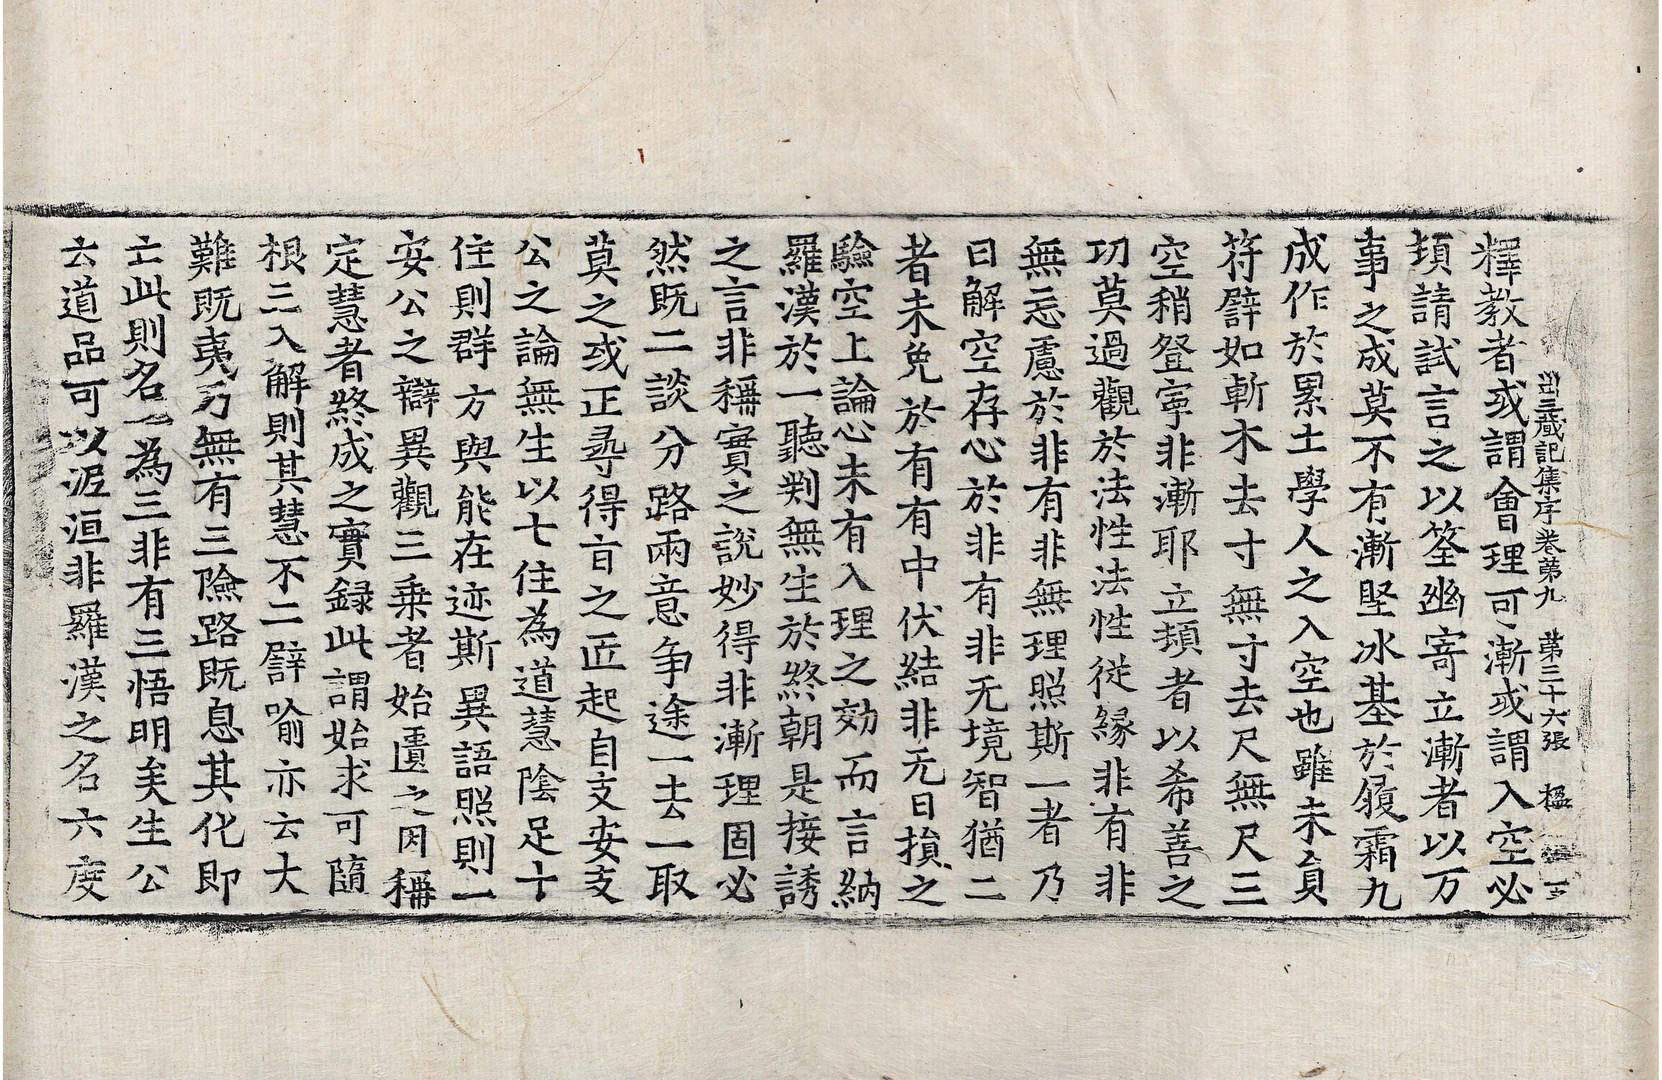 出三藏記集序卷第九 第三十六張 楹
釋教者或謂會理可漸或謂入空必
頓請試言之以筌幽寄立漸者以万
事之成莫不有漸堅冰基於履霜九
成作於累土學人之入空也雖未負
符譬如斬木去寸無寸去尺無尺三
空稍登寧非漸耶立頓者以希善之
功莫過觀於法性法性從緣非有非
無忘慮於非有非無理照斯一者乃
曰解空存心於非有非无境智猶二
者未免於有有中伏結非无日損之
驗空上論心未有入理之効而言納
羅漢於一聽判無生於終朝是接誘
之言非稱實之說妙得非漸理固必
然既二談分路兩意争途一去一取
莫之或正尋得旨之匠起自支安支
公之論無生以七住為道慧陰足十
住則群方與能在迹斯異語照則一
安公之辯異觀三乗者始匱之因稱
定慧者終成之實録此謂始求可隨
根三入解則其慧不二譬喻亦云大
難既夷乃無有三險路既息其化即
亡此則名一為三非有三悟明矣生公
云道品可以泥洹非羅漢之名六度